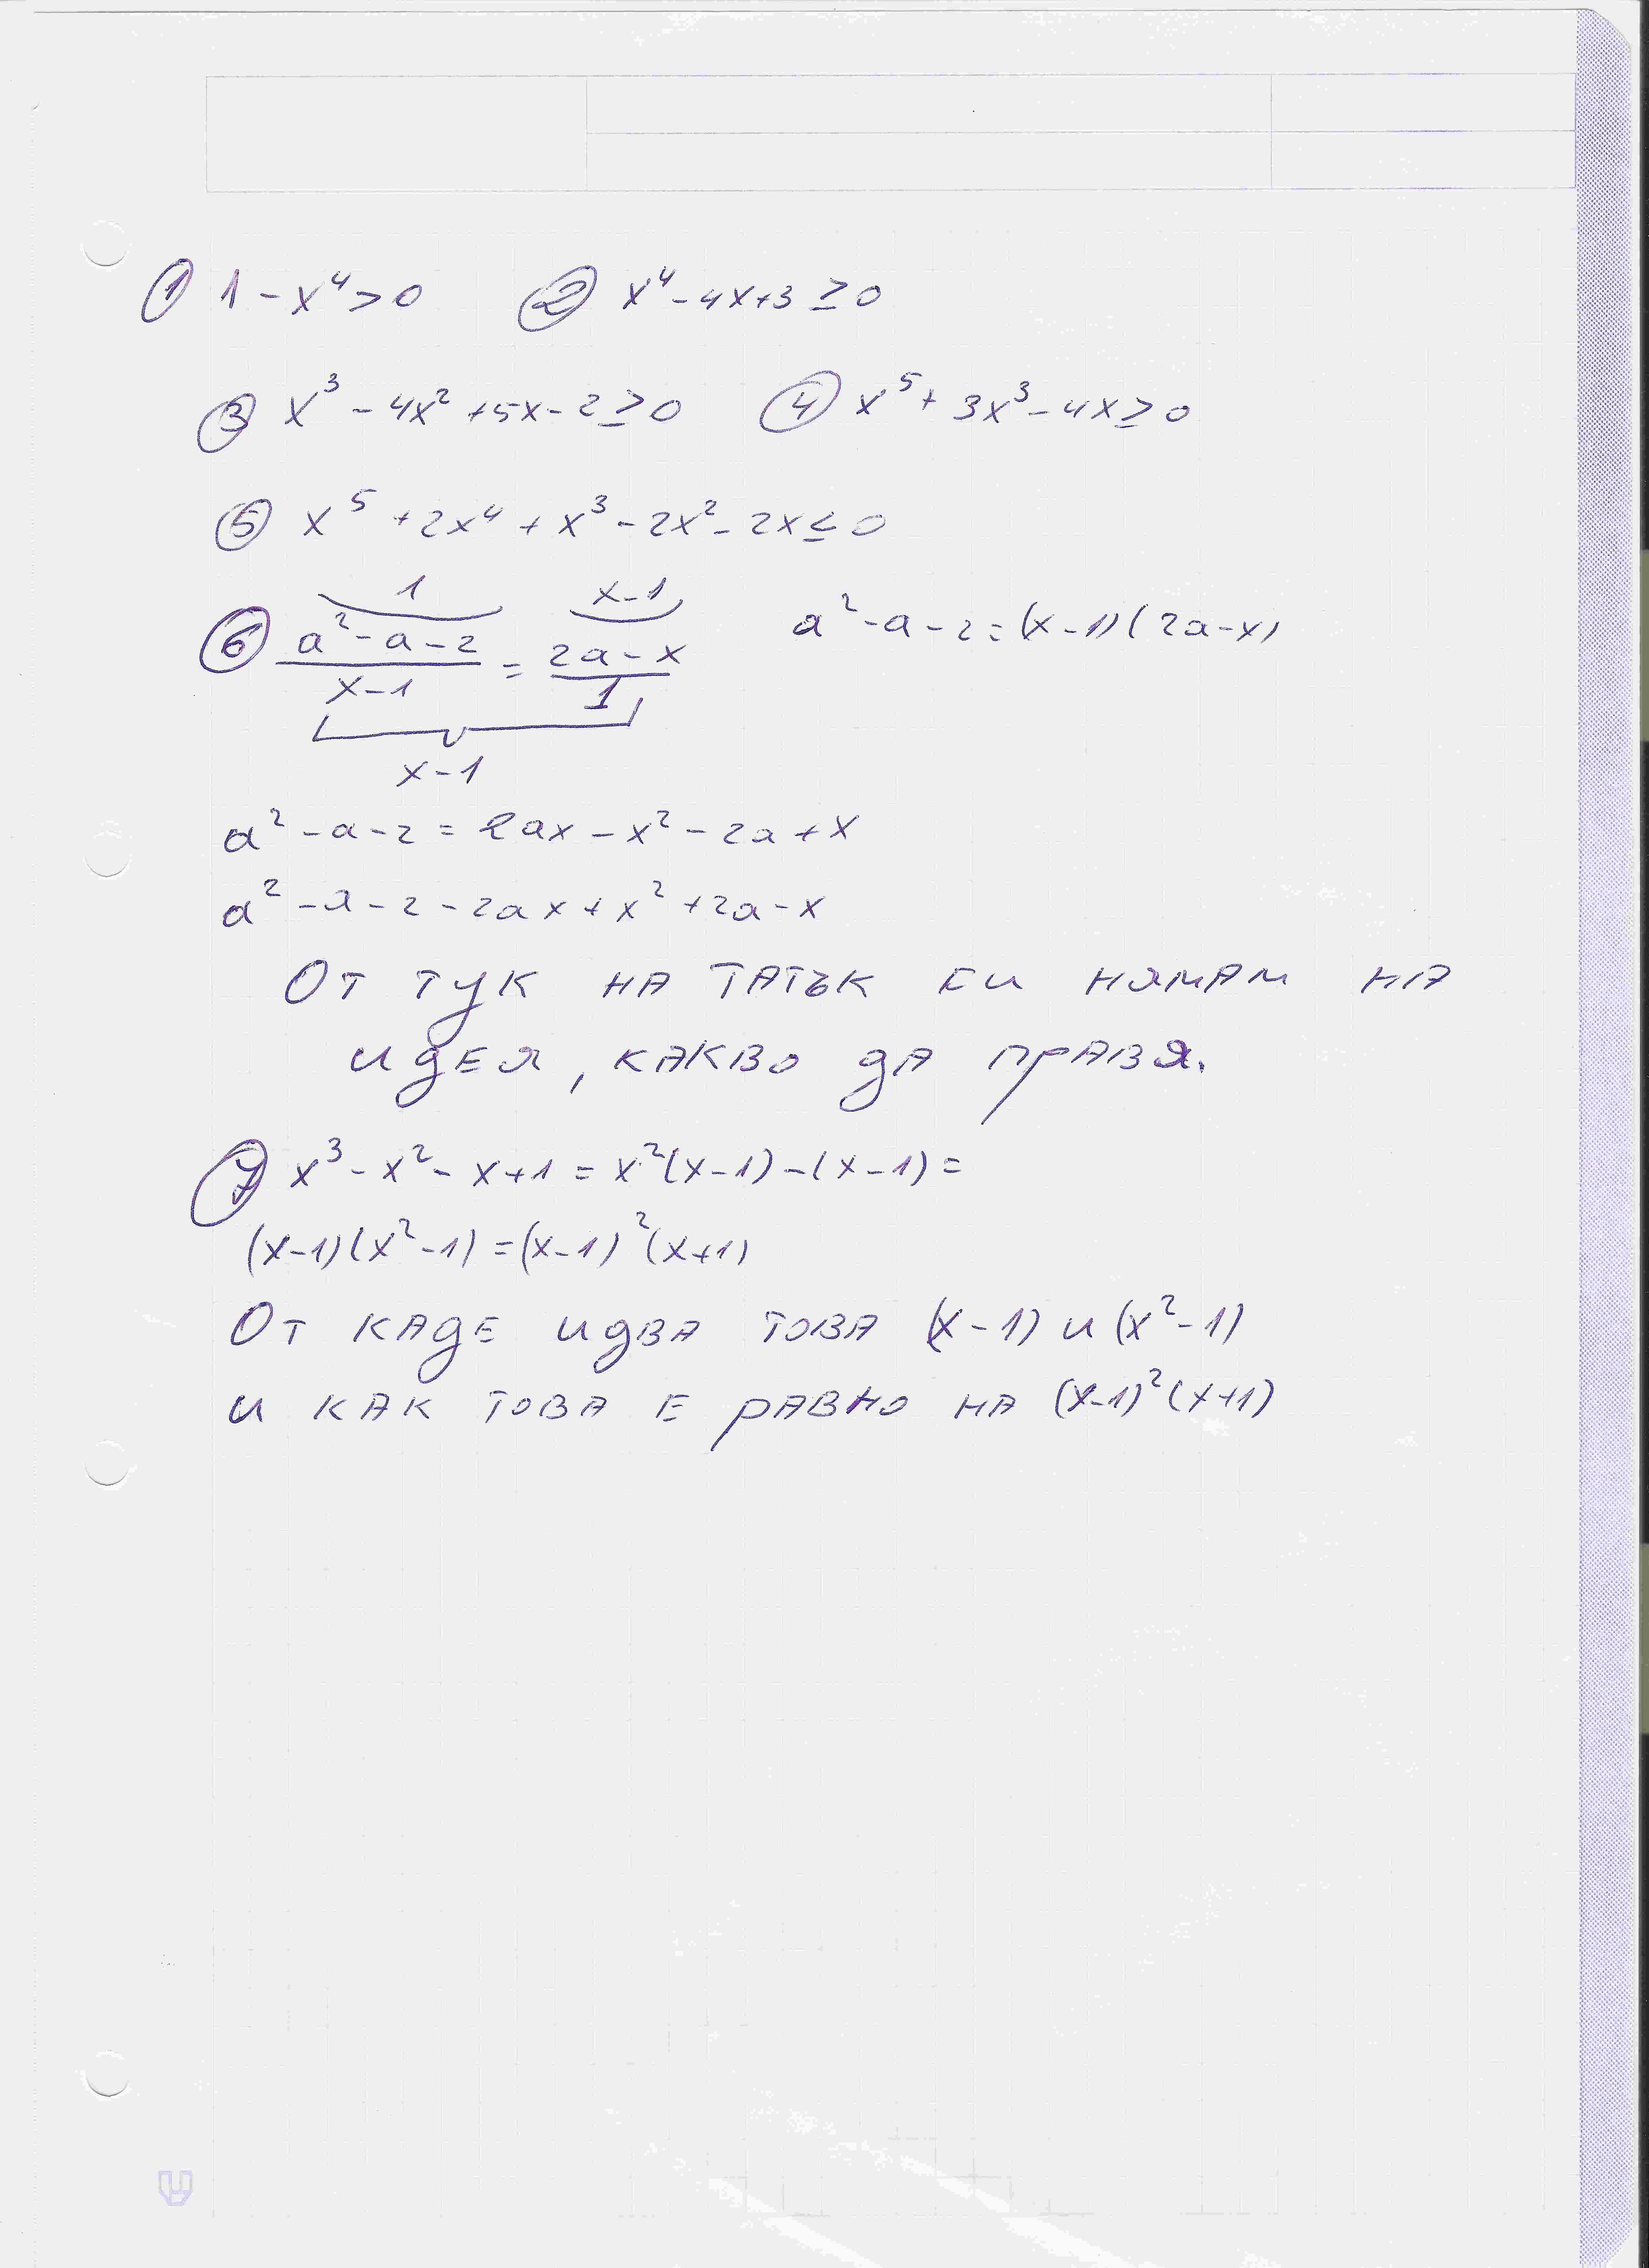 ① 1 - x⁴ > 0 ② x⁴ - 4x + 3 ≥ 0
③ x³ - 4x² + 5x - 2 ≥ 0 ④ x⁵ + 3x³ - 4x ≥ 0
⑤ x⁵ + 2x⁴ + x³ - 2x² - 2x ≤ 0
1 x-1
⑥ a² - a - 2 = 2a - x a² - a - 2 = (x-1)(2a-x)
x-1 1
x-1
a² - a - 2 = 2ax - x² - 2a + x
a² - a - 2 - 2ax + x² + 2a - x
От тук на татък си нямам на
идея, какво да правя.
⑦ x³ - x² - x + 1 = x²(x-1) - (x-1) =
(x-1)(x²-1) = (x-1)²(x+1)
От каде идва това (x-1) и (x²-1)
и как това е равно на (x-1)²(x+1)